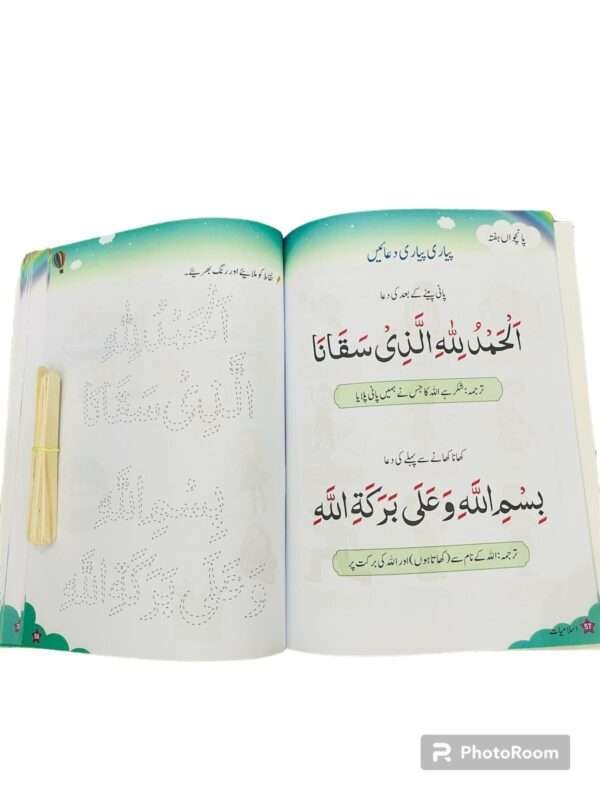 پانچواں ہفتہ
پیاری پیاری دعائیں
پانی پینے کے بعد کی دعا
اَلْحَمْدُ لِلّٰهِ الَّذِیْ سَقَانَا
ترجمہ: شکر ہے اللہ کا جس نے ہمیں پانی پلایا
کھانا کھانے سے پہلے کی دعا
بِسْمِ اللّٰهِ وَ عَلٰی بَرَكَةِ اللّٰهِ
ترجمہ: اللہ کے نام سے (کھاتا ہوں) اور اللہ کی برکت پر
57 اسلامیات
نقاط کو ملایئے اور رنگ بھریئے۔
اَلْحَمْدُ لِلّٰهِ
الَّذِیْ سَقَانَا
بِسْمِ اللّٰهِ
وَ عَلٰی بَرَكَةِ اللّٰهِ
PhotoRoom